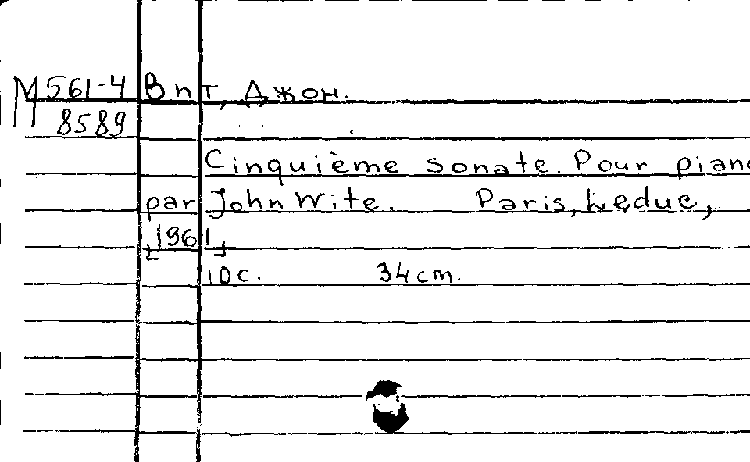 М 561-4 Вит, Джон.
8589
Cinquième sonate. Pour piano
par John Wite. Paris, Leduc,
[1961]
10 с. 34 cm.